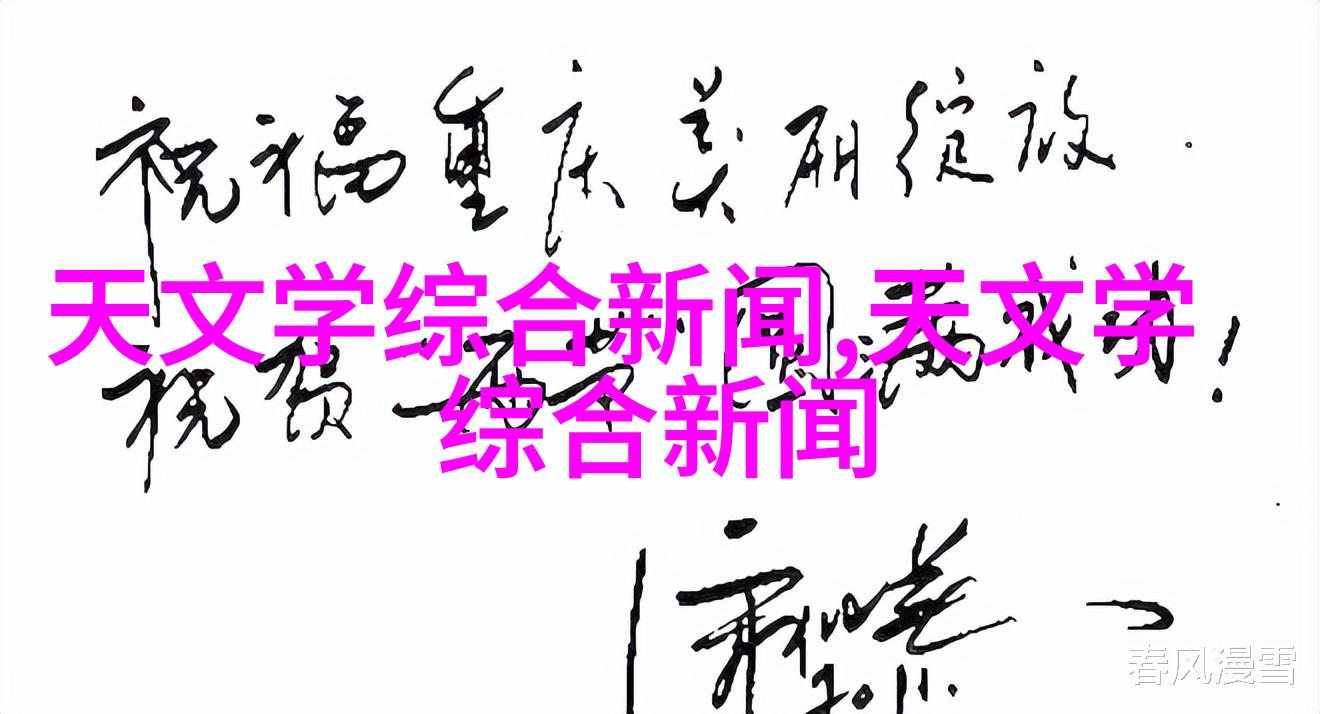 祝福重庆美丽绽放.
天文学综合新闻,天文学
综合新闻
祝贺
圆满成功!
2011.
春风漫雪